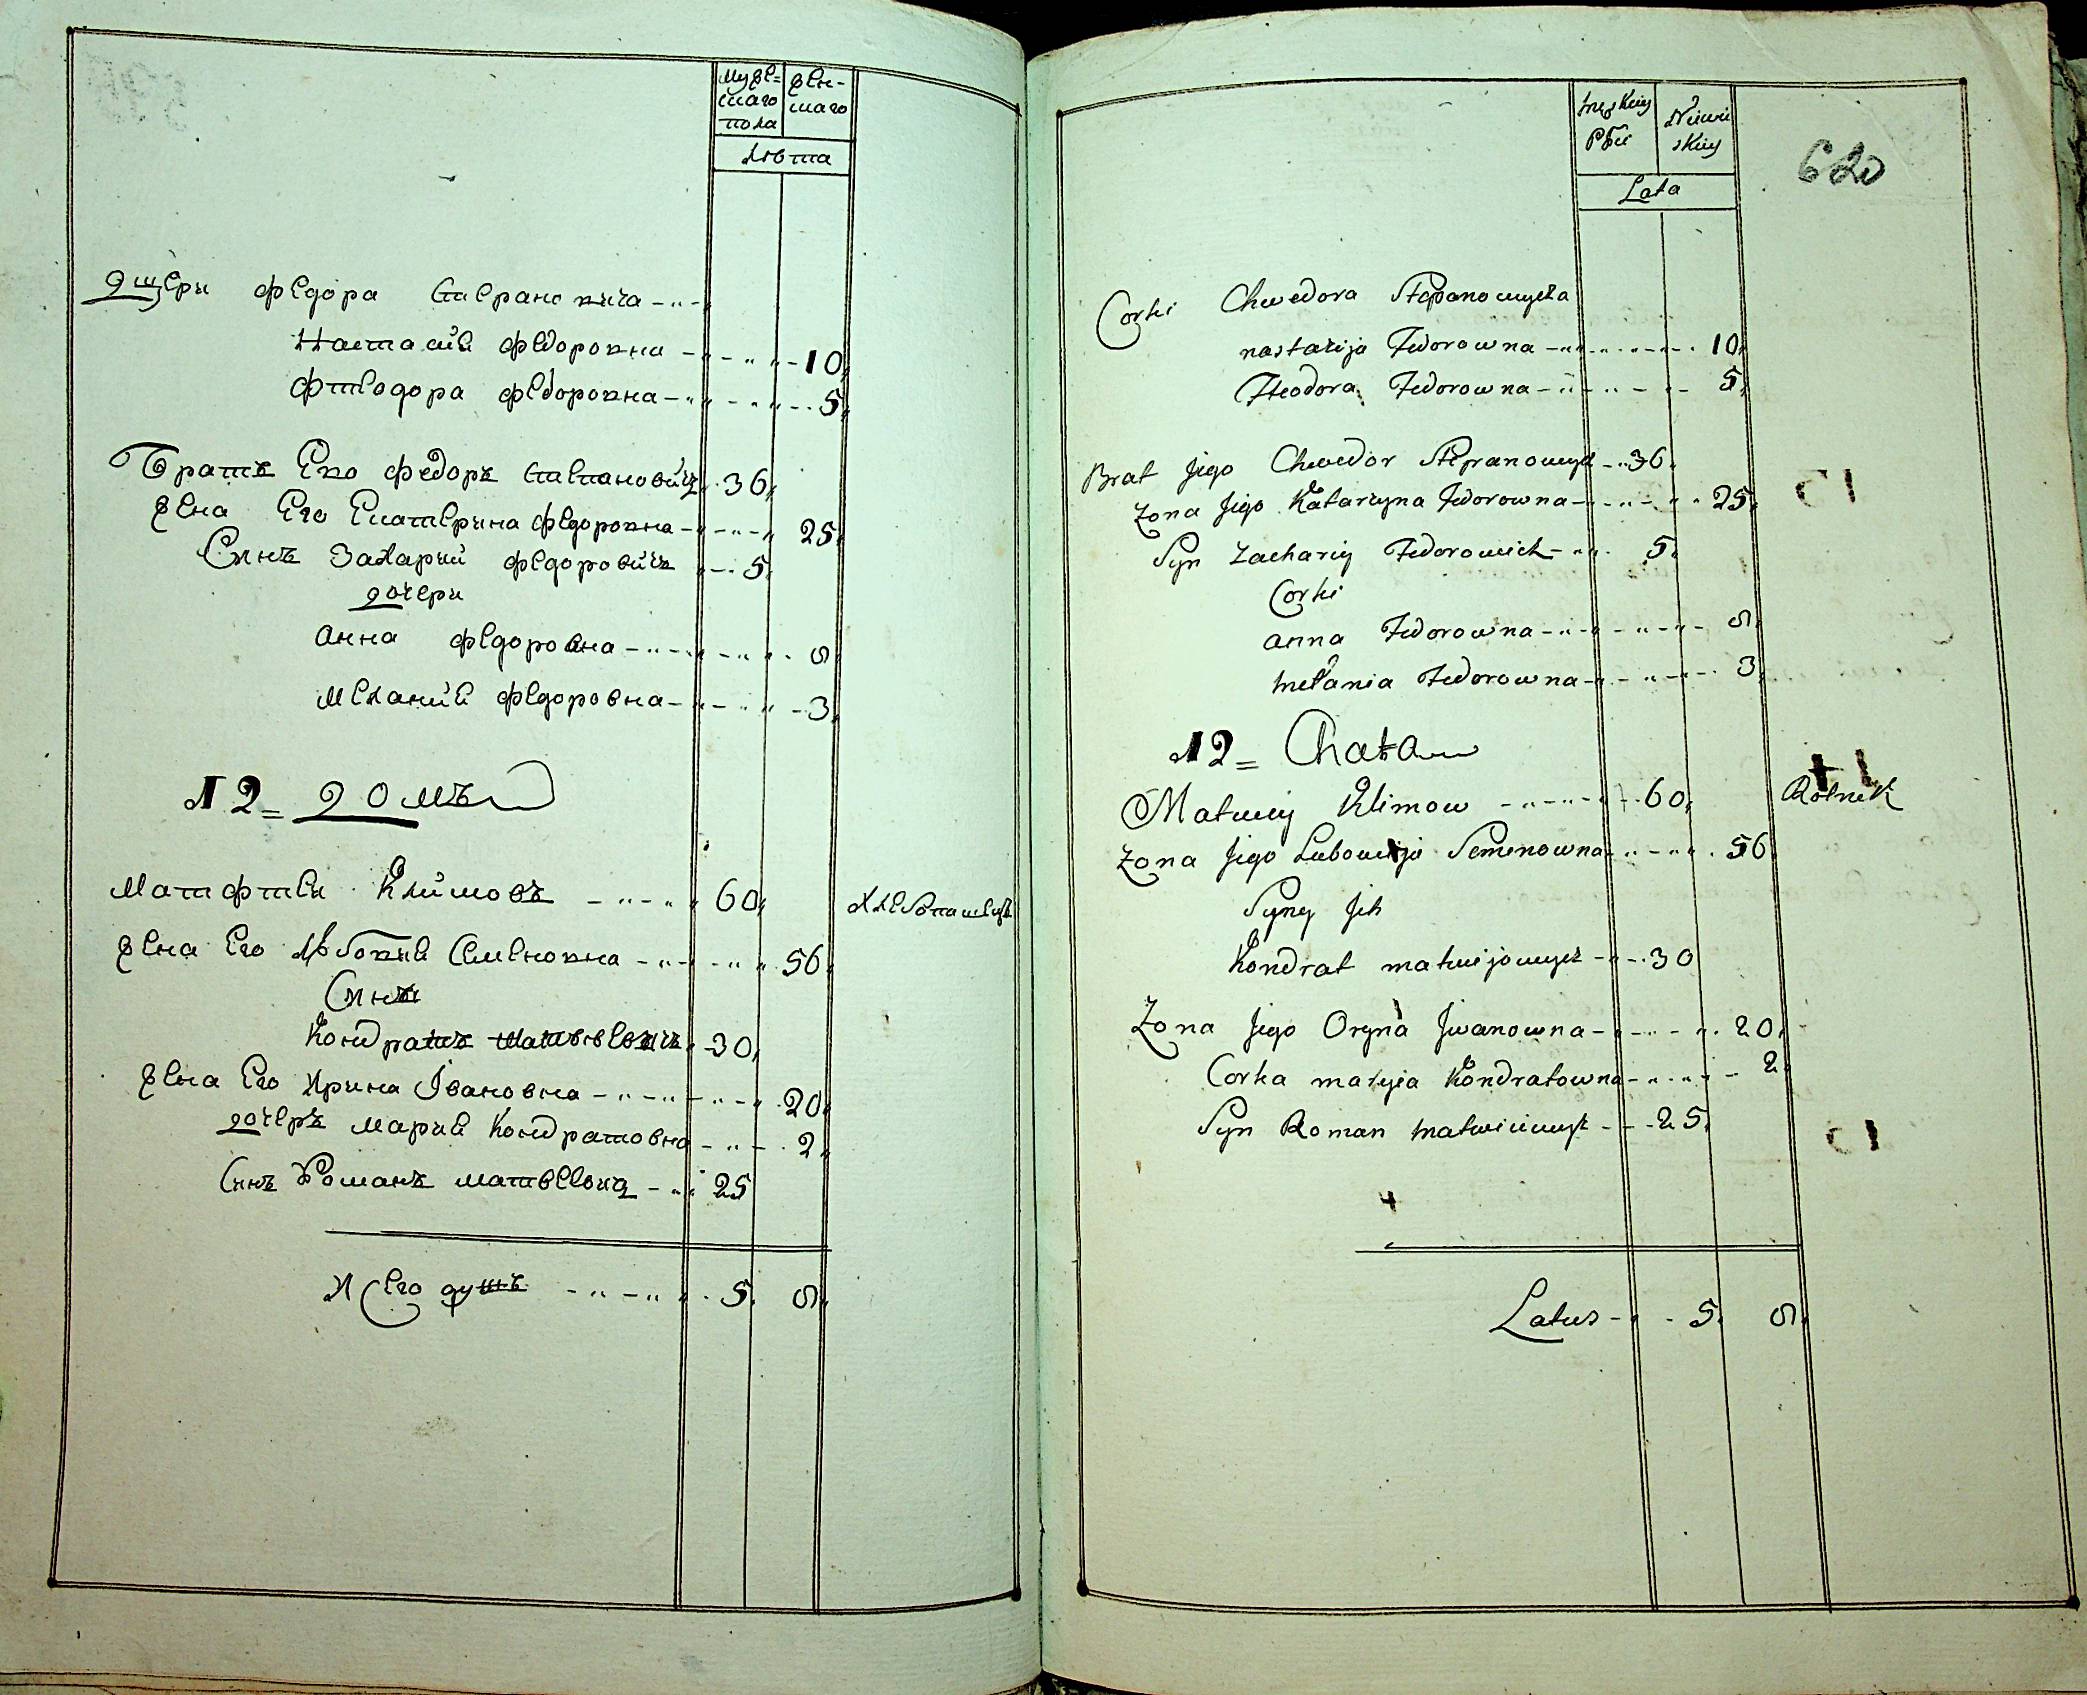 муже=
скаго
пола
жен-
скаго
Лѣта
дщери Федора Степановича
Настасия Федоровна 10
Фтеодора Федоровна 5
Братъ Его Федоръ Степановичъ 36
Жена Его Екатерина Федоровна 25
Синъ Захарий Федоровичъ 5
дочери
Анна Федоровна 8
Мелания Федоровна 3
N 2 = домъ
Матфтеи Климовъ 60 Хлебопашецъ
Жена Его Любовия Семеновна 56
Сины
Кондратъ Матвѣевичъ 30
Жена Его Ирина Івановна 20
дочеръ Мария Кондратовна 2
Синъ Романъ Матвеевичъ 25
Всего душъ 5 8
męskiey
Płci
Niewie
skiey
Lata
620
Corki Chwedora Stepanowycza
nastazija Fedorowna 10
Fteodora Fedorowna 5
Brat Jego Chwedor Stepanowycz 36
Zona Jego Katarzyna Fedorowna 25
Syn Zachariy Fedorowich 5
Corki
anna Fedorowna 8
mełania Fedorowna 3
N 2 = Chata
Matwiy Klimow 60 Rolnik
Zona Jego Lubowija Semenowna 56
Syny Jch
Kondrat matwijowycz 30
Zona Jego Oryna Jwanowna 20
Corka maryia Kondratowna 2
Syn Roman matwiiewycz 25
Latus 5 8